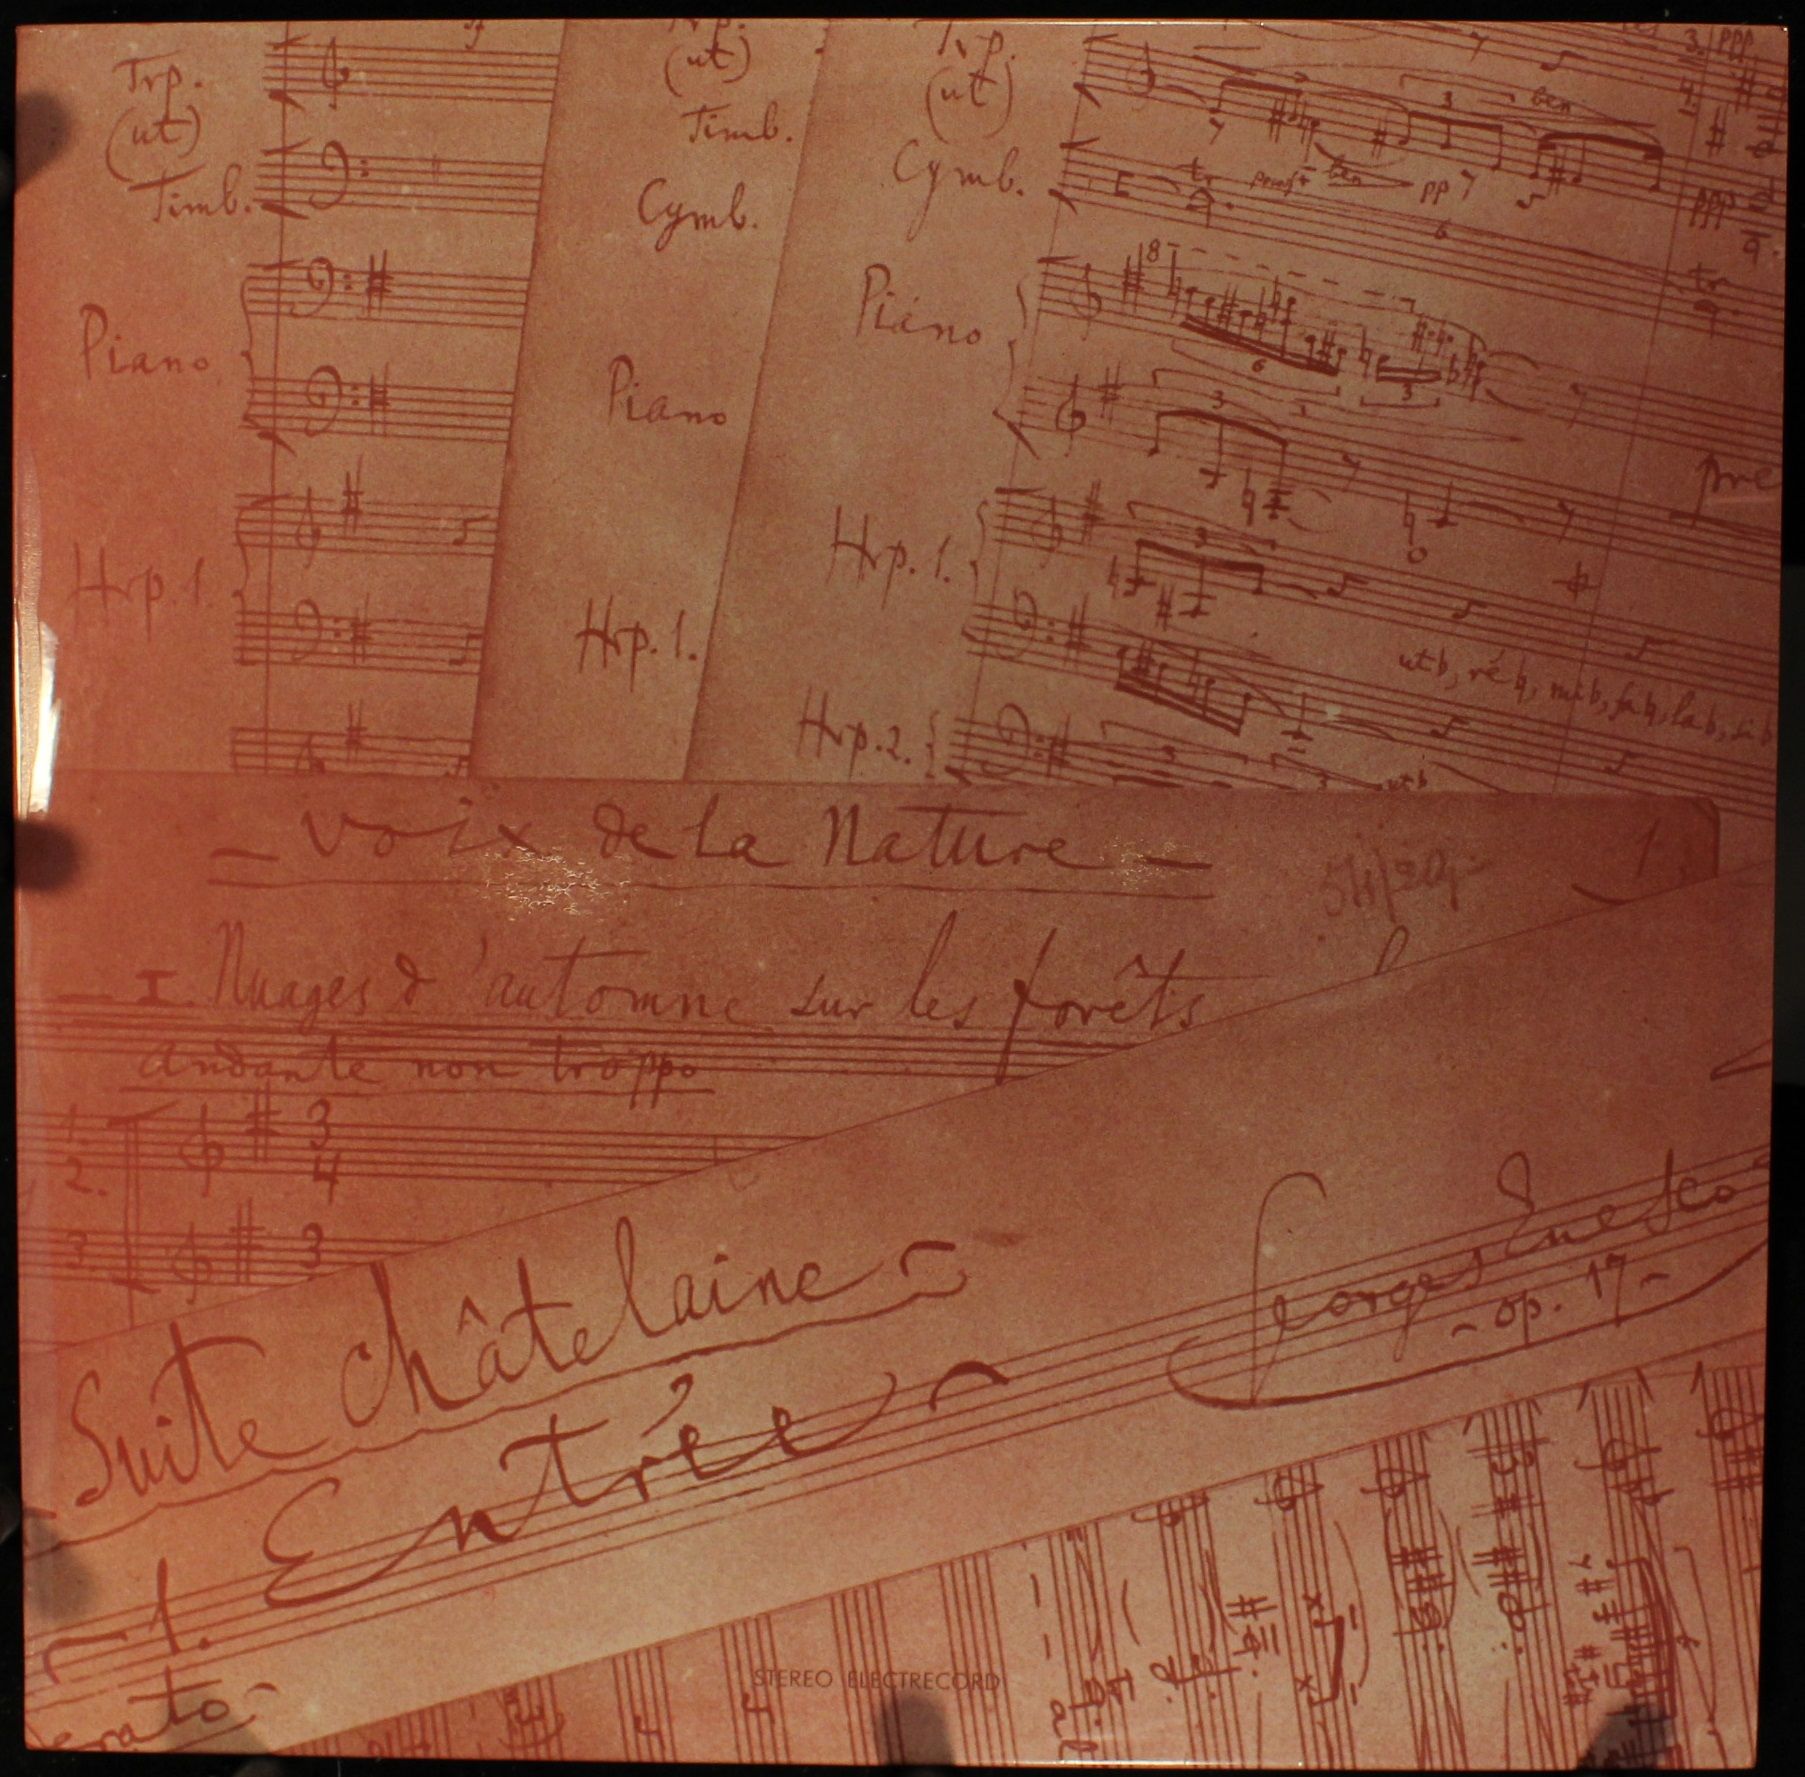 Trp.
(ut)
Timb.
Piano
Hrp. 1.
Trp.
(ut)
Timb.
Cymb.
Piano
Hrp. 1.
Trp.
(ut)
Cymb.
Piano
Hrp. 1.
Hrp. 2.
3
ben
tr
ben
pp
6
ppp
3.
4.
ppp
tr
8
6
3
3
3
pre
ut♭, ré♮, mi♭, fa♮, la♭, si♭
3
ut♭
– Voix de la Nature –
1.
– I. Nuages d'automne sur les forêts
Andante non troppo
1.
2.
3
4
3.
3
Suite Châtelaine
Georges Enesco
– op. 17 –
1. Entrée
STEREO ELECTRECORD